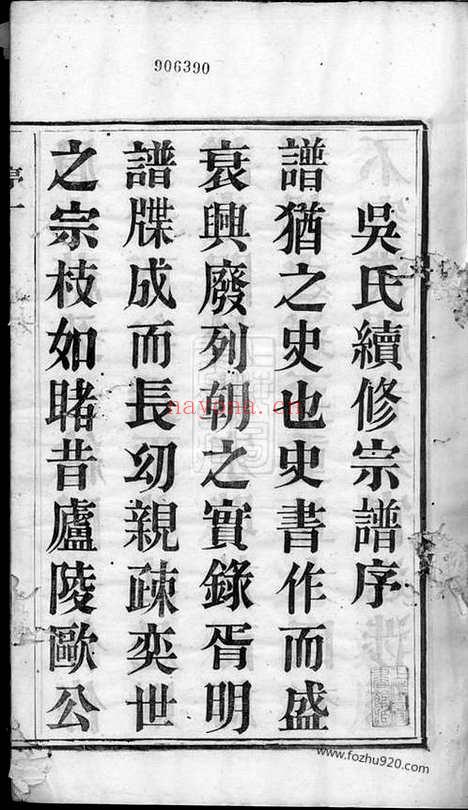 906390
吳氏續修宗譜序
譜猶之史也史書作而盛
衰興廢列朝之實錄胥明
譜牒成而長幼親疎奕世
之宗枝如睹昔廬陵歐公
nayona.cn
www.fozhu920.com